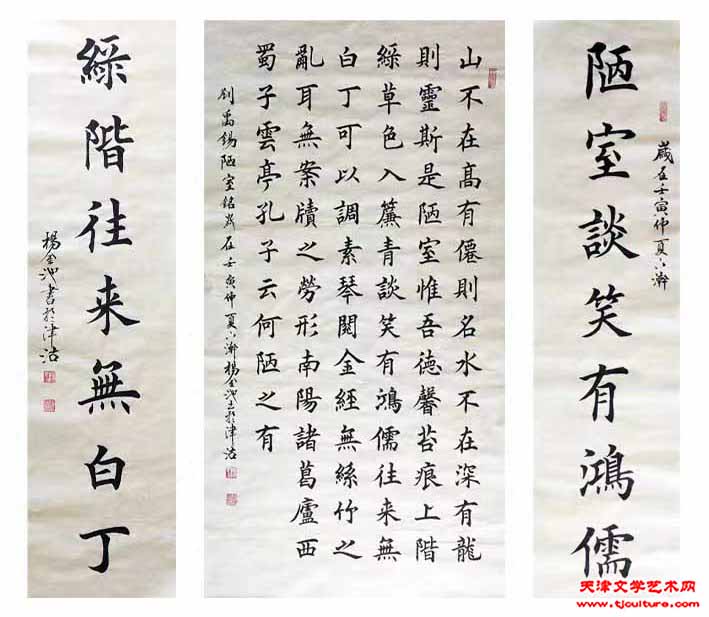 歲在壬寅仲夏下澣
陋室談笑有鴻儒
山不在高有僊則名水不在深有龍
則靈斯是陋室惟吾德馨苔痕上階
綠草色入簾青談笑有鴻儒往来無
白丁可以調素琴閱金經無絲竹之
亂耳無案牘之勞形南陽諸葛廬西
蜀子雲亭孔子云何陋之有
劉禹錫陋室銘歲在壬寅仲夏下澣楊金池書於津沽
綠階往来無白丁
楊金池書於津沽
天津文学艺术网
www.tjculture.com